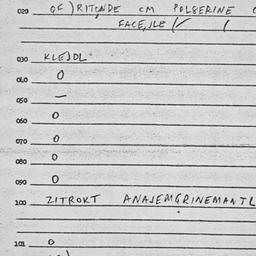 020 OF RITONDE CM POLGERINE
FACEJLE
030 KLEJDL
040 O
050 —
060 O
070 O
080 O
090 O
100 ZITROKT ANAJEMGRINEMANTL
101 O